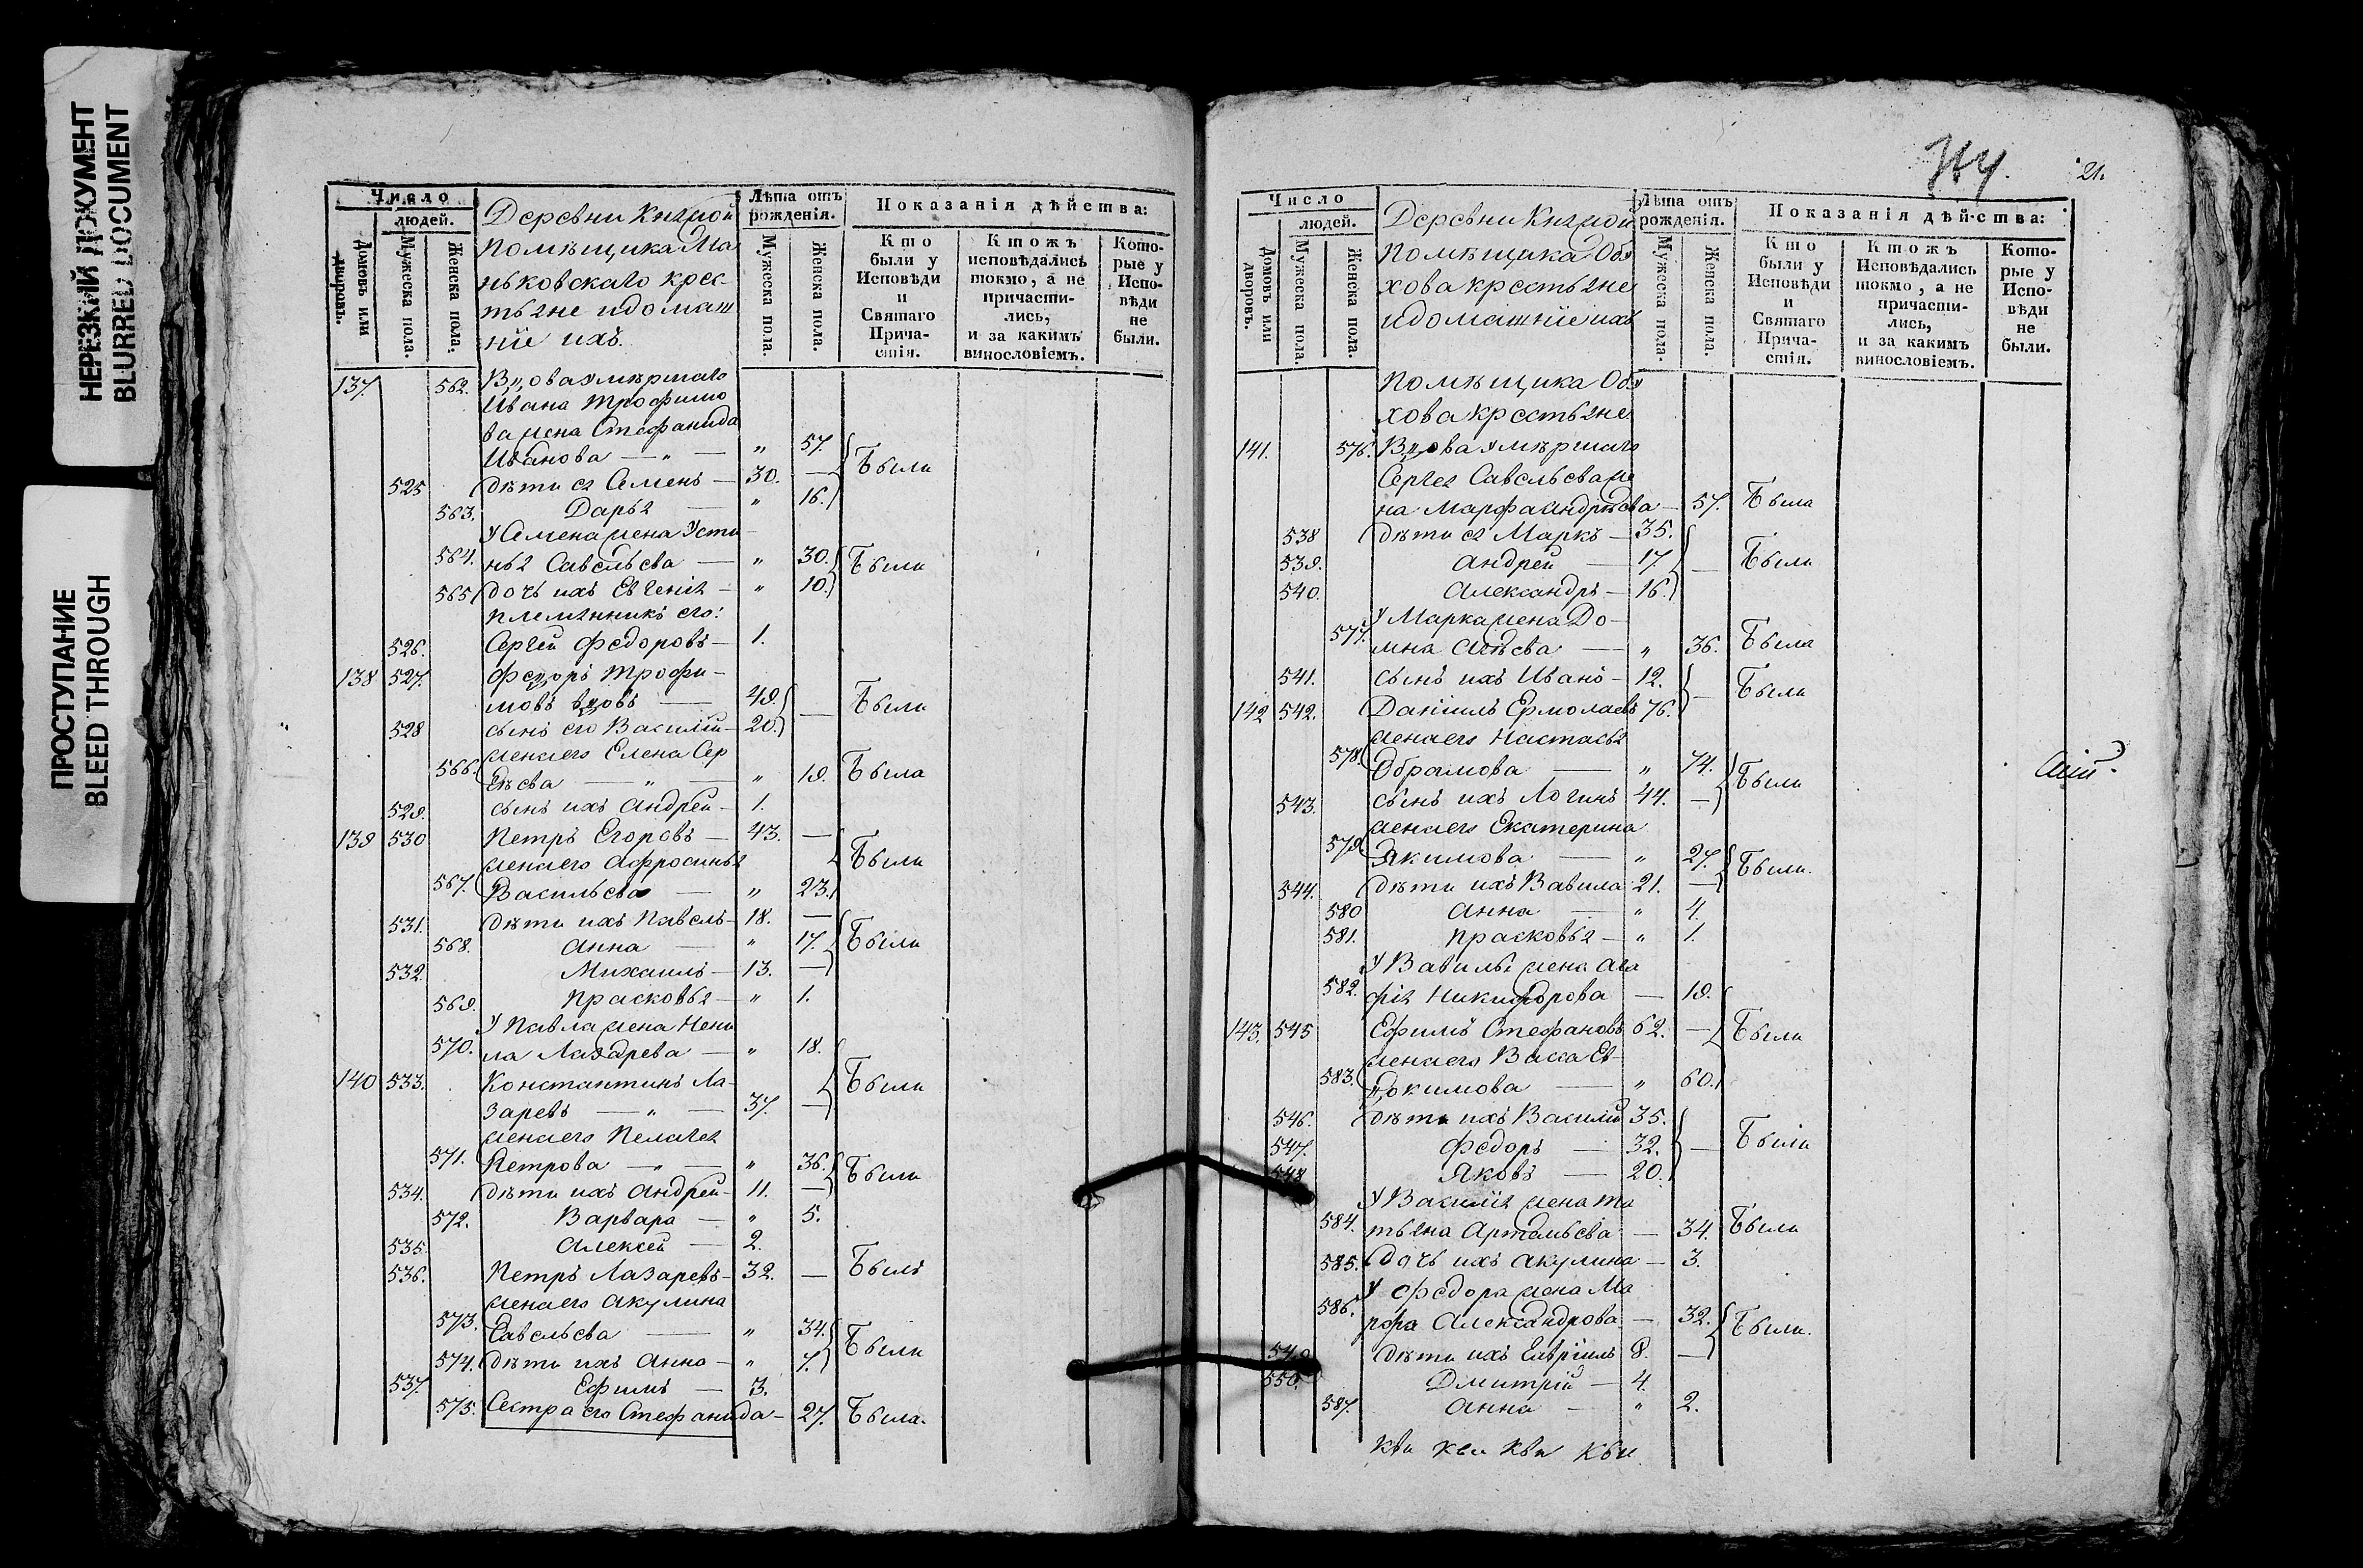 НЕРЕЗКИЙ ДОКУМЕНТ
BLURRED DOCUMENT
ПРОСТУПАНИЕ
BLEED THROUGH
Число
людей.
Домовъ или дворовъ.
Мужеска пола.
Женска пола.
Деревни Княжой
помѣщика Ма
ньковскаго крес-
тьяне и домаш
ніе ихъ.
Лѣта отъ рожденія.
Мужеска пола.
Женска пола.
Показанія дѣйства:
Кто были у Исповѣди и Святаго Прича-стія.
Ктожъ исповѣдались токмо, а не причасти-лись, и за какимъ винословіемъ.
Кото-рые у Испо-вѣди не были.
137. 562. Вдова умѣршаго
Ивана Трофимо
ва жена Стефанида
Иванова — „ — „ 57. Были
525 дѣти ея Семенъ — 30. —
563. Дарья — „ 16.
У Семена жена Усти
564. нья Савельева — „ 30. Были
565 дочь ихъ Евгенія — „ 10.
племянникъ его:
526. Сергей Федоровъ — 1.
138 527. Федоръ Трофи-
мовъ вдовъ — 49. — Были
528 сынъ его Василий — 20.
жена его Елена Сер
566. гѣева — „ — „ 19. Была
529. сынъ ихъ Андрей — 1.
139 530 Петръ Егоровъ — 43. — Были
жена его Афросинья
567. Васильева — „ 23.
531. дѣти ихъ Павелъ — 18. — Были
568. Анна — „ 17.
532. Михаилъ — 13. —
569. Прасковья — „ 1.
У Павла жена Нени
570. ла Лазарева — „ 18.
140 533. Константинъ Ла- Были
заревъ — „ — 37. —
жена его Пелагея
571. Петрова — „ — „ 36. Были
534. дѣти ихъ Андрей — 11. —
572. Варвара — „ 5.
535. Алексей — 2.
536. Петръ Лазаревъ — 32. — Былъ
жена его Акулина
573. Савельева — „ 34. Были
574. дѣти ихъ Анна — „ 7.
537. Ефимъ — 3.
575. Сестра его Стефанида — 27. Была.
21.
Число
людей.
Домовъ или дворовъ.
Мужеска пола.
Женска пола.
Деревни Княжой
помѣщика Обѣ
хова крестьяне
и домашніе ихъ
Лѣта отъ рожденія.
Мужеска пола.
Женска пола.
Показанія дѣйства:
Кто были у Исповѣди и Святаго Прича-стія.
Ктожъ Исповѣдались токмо, а не причасти-лись, и за какимъ винословіемъ.
Кото-рые у Испо-вѣди не были.
помѣщика Обѣ
хова крестьяне.
141. 576. Вдова умѣршаго
Сергея Савельева же
на Марфа Андрѣева — 57. Была
538 дѣти ея Маркъ — 35.
539. Андрей — 17 — Были
540. Александръ — 16.
У Марка жена До-
577. мна Агѣева — „ 36. Была
541. сынъ ихъ Иванъ — 12. — Были
142 542. Даніилъ Ермолаевъ 76.
жена его Настасья
578. Обрамова — „ 74. Были
543. сынъ ихъ Логинъ 44. —
жена его Екатерина
579. Якимова — „ 27. Были.
544. дѣти ихъ Вавила 21. —
580 Анна — „ 4.
581. Прасковья — „ 1.
У Вавилы жена Ага
582. фія Никифорова — 19.
143. 545 Ефимъ Стефановъ 62. — Были
жена его Васса Ев-
583. докимова — „ 60.
546. дѣти ихъ Василій 35.
547. Федоръ — 32. — Были
548 Яковъ — 20.
У Василія жена Та
584. тьяна Артемьева — 34. Была
585. дочь ихъ Акулина — 3.
У Федора жена Ма
586. рфа Александрова — 32. Были.
549 дѣти ихъ Гавріилъ 8. —
550. Дмитрій — 4.
587. Анна — „ 2.